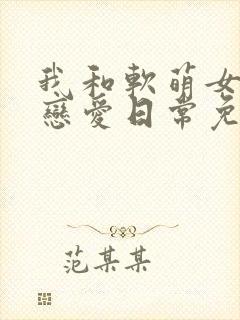 我和軟萌女
戀愛日常免
范某某